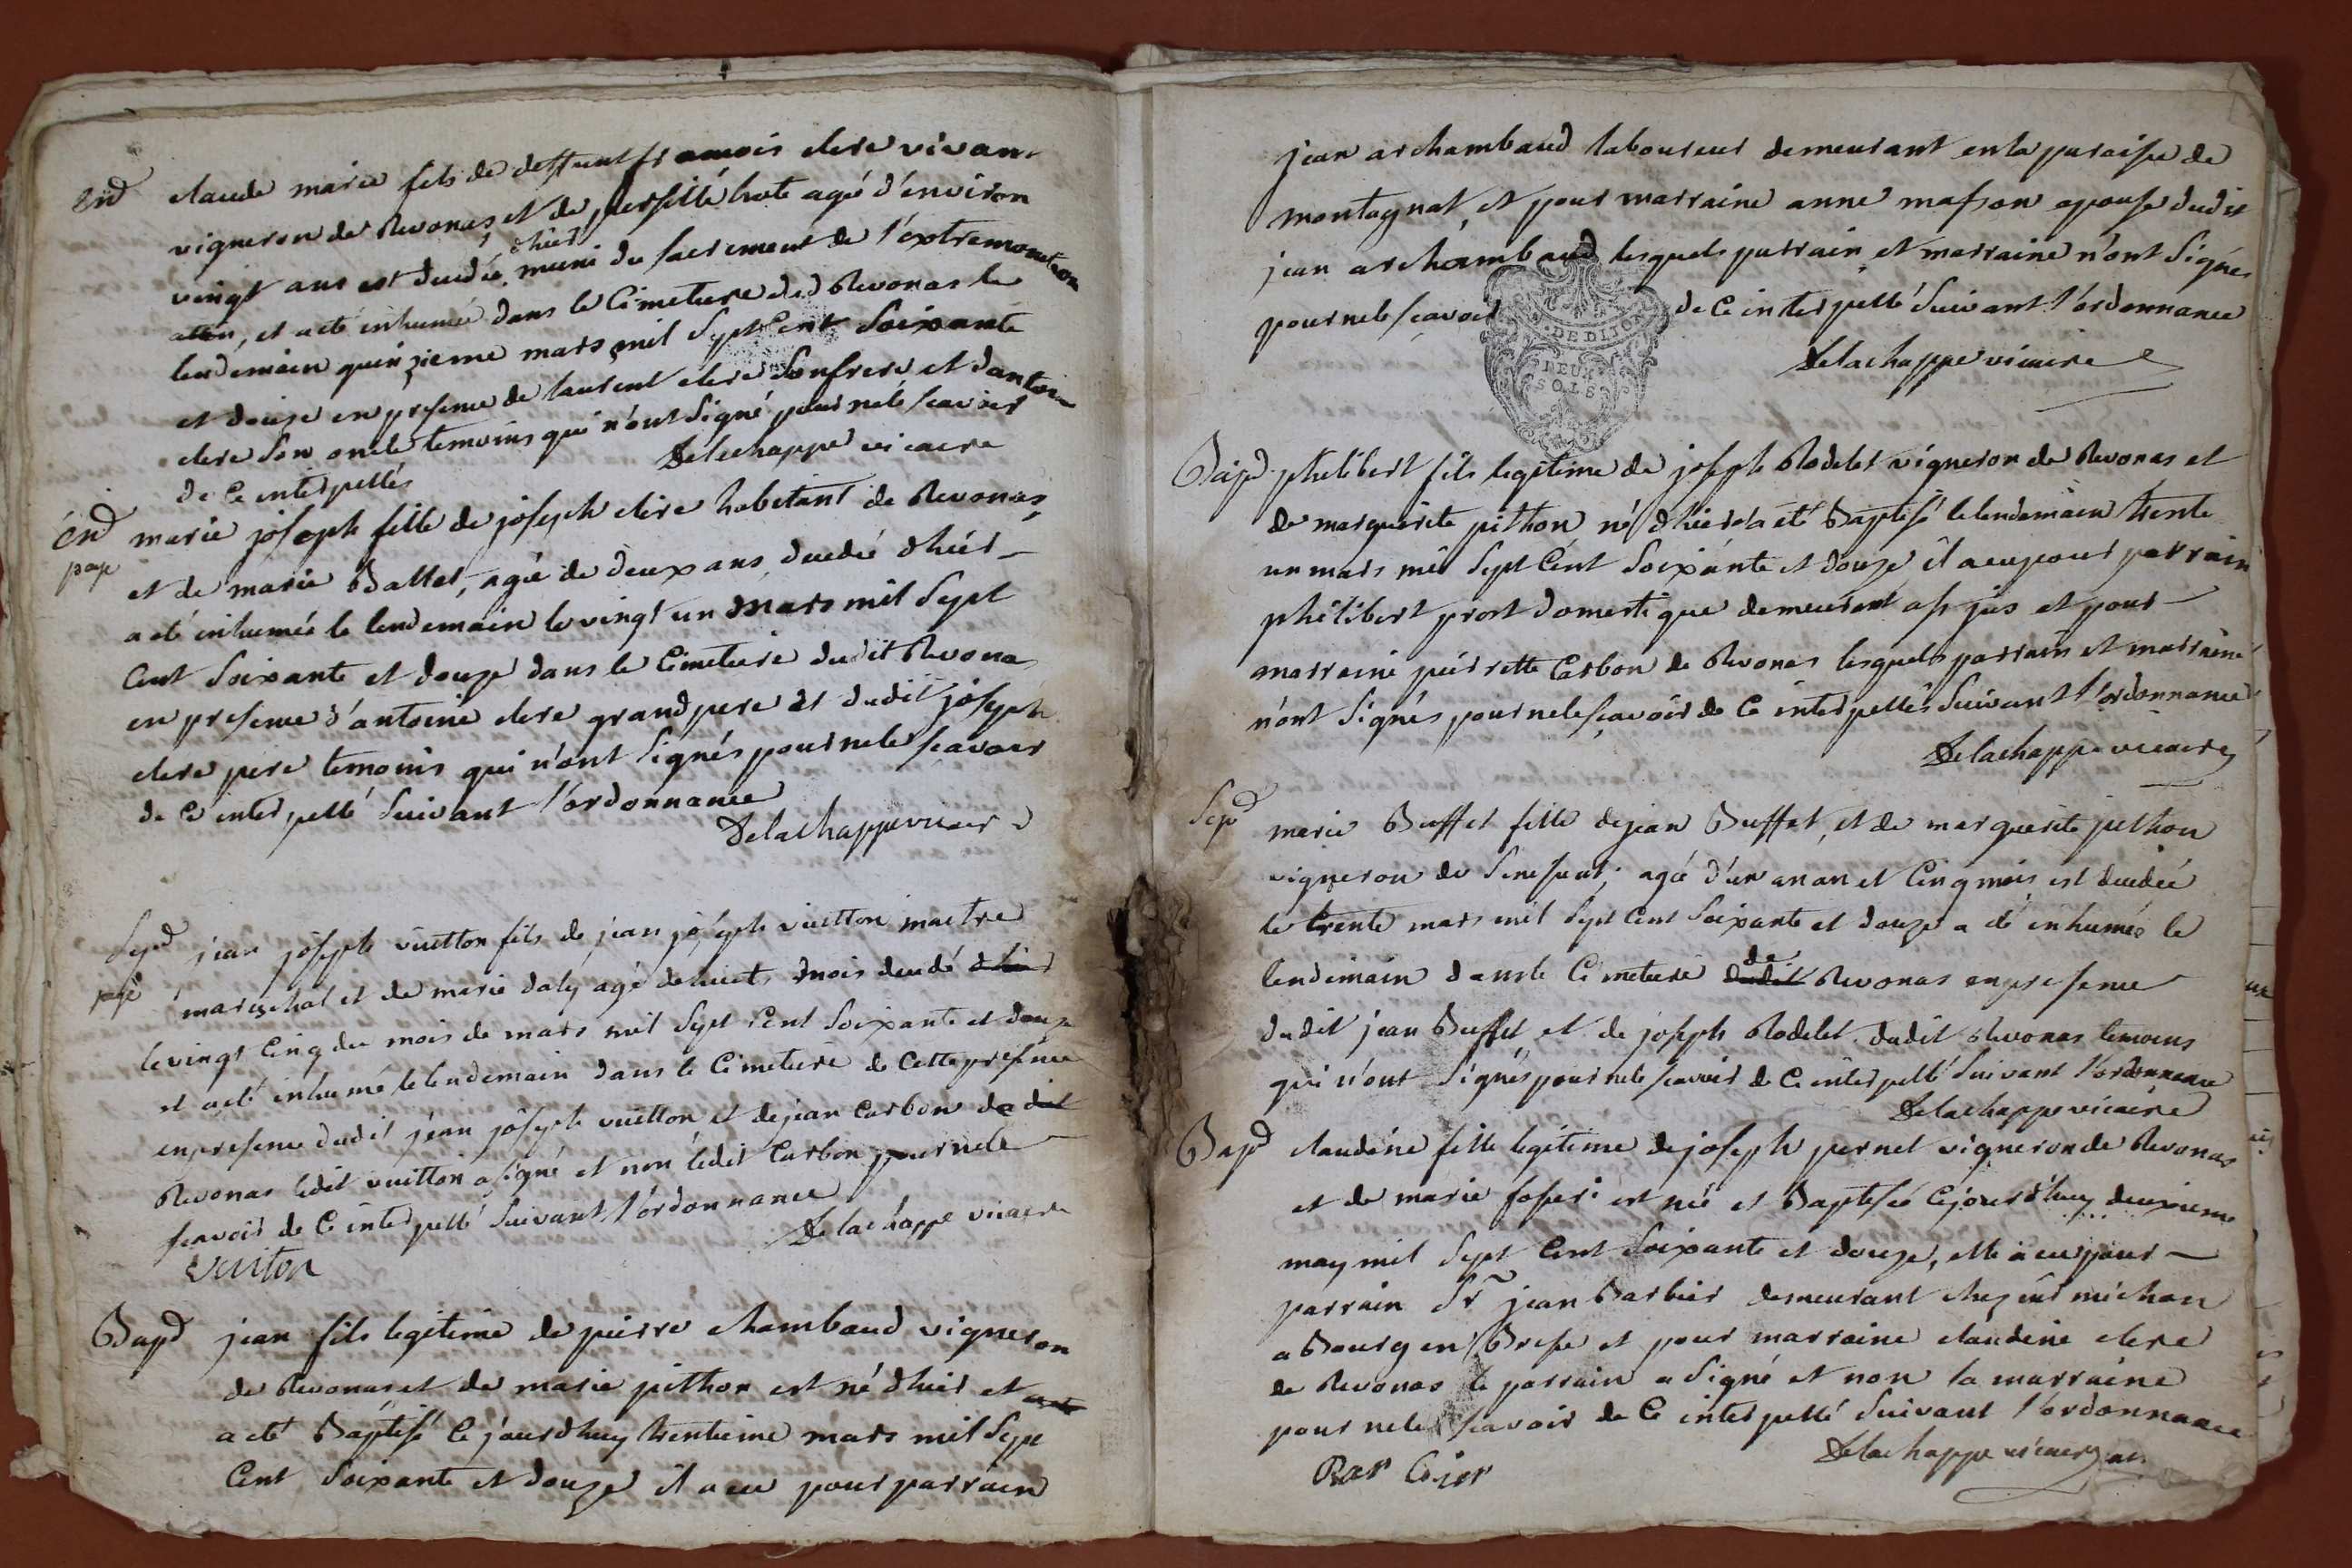 End
claude marie fils de deffunt francois clere vivant
vigneron de Revonas et de pierrette hote agé d'environ
vingt ans est decedé dhier muni du sacrement de l'extremonction
et a eté inhumé dans le Cimetiere dud Revonas le
lendemain quinzieme mars mil Sept Cent Soixante
et douze en presence de laurent clere Son frere et dantoine
clere Son oncle temoins qui n'ont Signé pour ne le scavoir
de Ce interpellés
Delachappe vicaire
End
paye
marie joseph fille de joseph clere habitant de Revonas
et de marie Ballet, agée de deux ans decedée dhier
a eté inhumée le lendemain le vingt un mars mil Sept
Cent Soixante et douze dans le Cimetiere dudit Revonas
en presence d'antoine clere grand pere et dudit joseph
clere pere temoins qui n'ont Signés pour ne le scavoir
de Ce interpellé Suivant l'ordonnance
Delachappe vicaire
Sepd
paye
jean joseph vuitton fils de jean joseph vuitton maitre
mareschal et de marie daly agé de huit mois decedé dhier
le vingt Cinq du mois de mars mil Sept Cent Soixante et douze
et a eté inhumé le lendemain dans le Cimetiere de Cette
en presence dudit jean joseph vuitton et de jean Carbon dudit
Revonas ledit vuitton a signé et non ledit Carbon pour ne le
scavoir de Ce interpellé Suivant l'ordonnance
Delachappe vicaire
vuiton
Bapd
jean fils legitime de pierre chambaud vigneron
de Revonas et de marie pithon est né dhier et
a eté Baptisé Cejourdhuy trentieme mars mil Sept
Cent Soixante et douze il a eu pour parrain
jean archambaud laboureur demeurant en la paroisse de
montagnat, et pour marraine anne masson epouse dudit
jean archambaud lesquels parrain et marraine n'ont Signés
pour ne le scavoir de Ce interpellé Suivant l'ordonnance
DE DIJON
DEUX
SOLS
Delachappe vicaire
Bapd
philibert fils legitime de joseph Rodelet vigneron de Revonas et
de marguerite pithon né dhier a eté Baptisé le lendemain trente
un mars mil Sept Cent Soixante et douze il a eu pour parrain
philibert prost domestique demeurant et pour
marraine pierrette Carbon de Revonas lesquels parrain et marraine
n'ont Signés pour ne le scavoir de Ce interpellés Suivant l'ordonnance
Delachappe vicaire
Sepd
marie Buffet fille de jean Buffet, et de marguerite pithon
vigneron de Senissiat, agée d'un an an et Cinq mois est decedée
le trente mars mil Sept Cent Soixante et douze a eté inhumée le
lendemain dans le Cimetiere dudit de Revonas en presence
dudit jean Buffet et de joseph Rodelet dudit Revonas temoins
qui n'ont Signés pour ne le scavoir de Ce interpellé Suivant l'ordonnance
Delachappe vicaire
Bapd
claudine fille legitime de joseph pernet vigneron de Revonas
et de marie est née et Baptisée Cejourd'huy deuxieme
may mil Sept Cent Soixante et douze, elle a eu pour
parrain Sr jean Barbier demeurant chez michon
a Bourg en Bresse et pour marraine claudine clere
de Revonas le parrain a Signé et non la marraine
pour ne le scavoir de Ce interpellé Suivant l'ordonnance
Delachappe vicaire